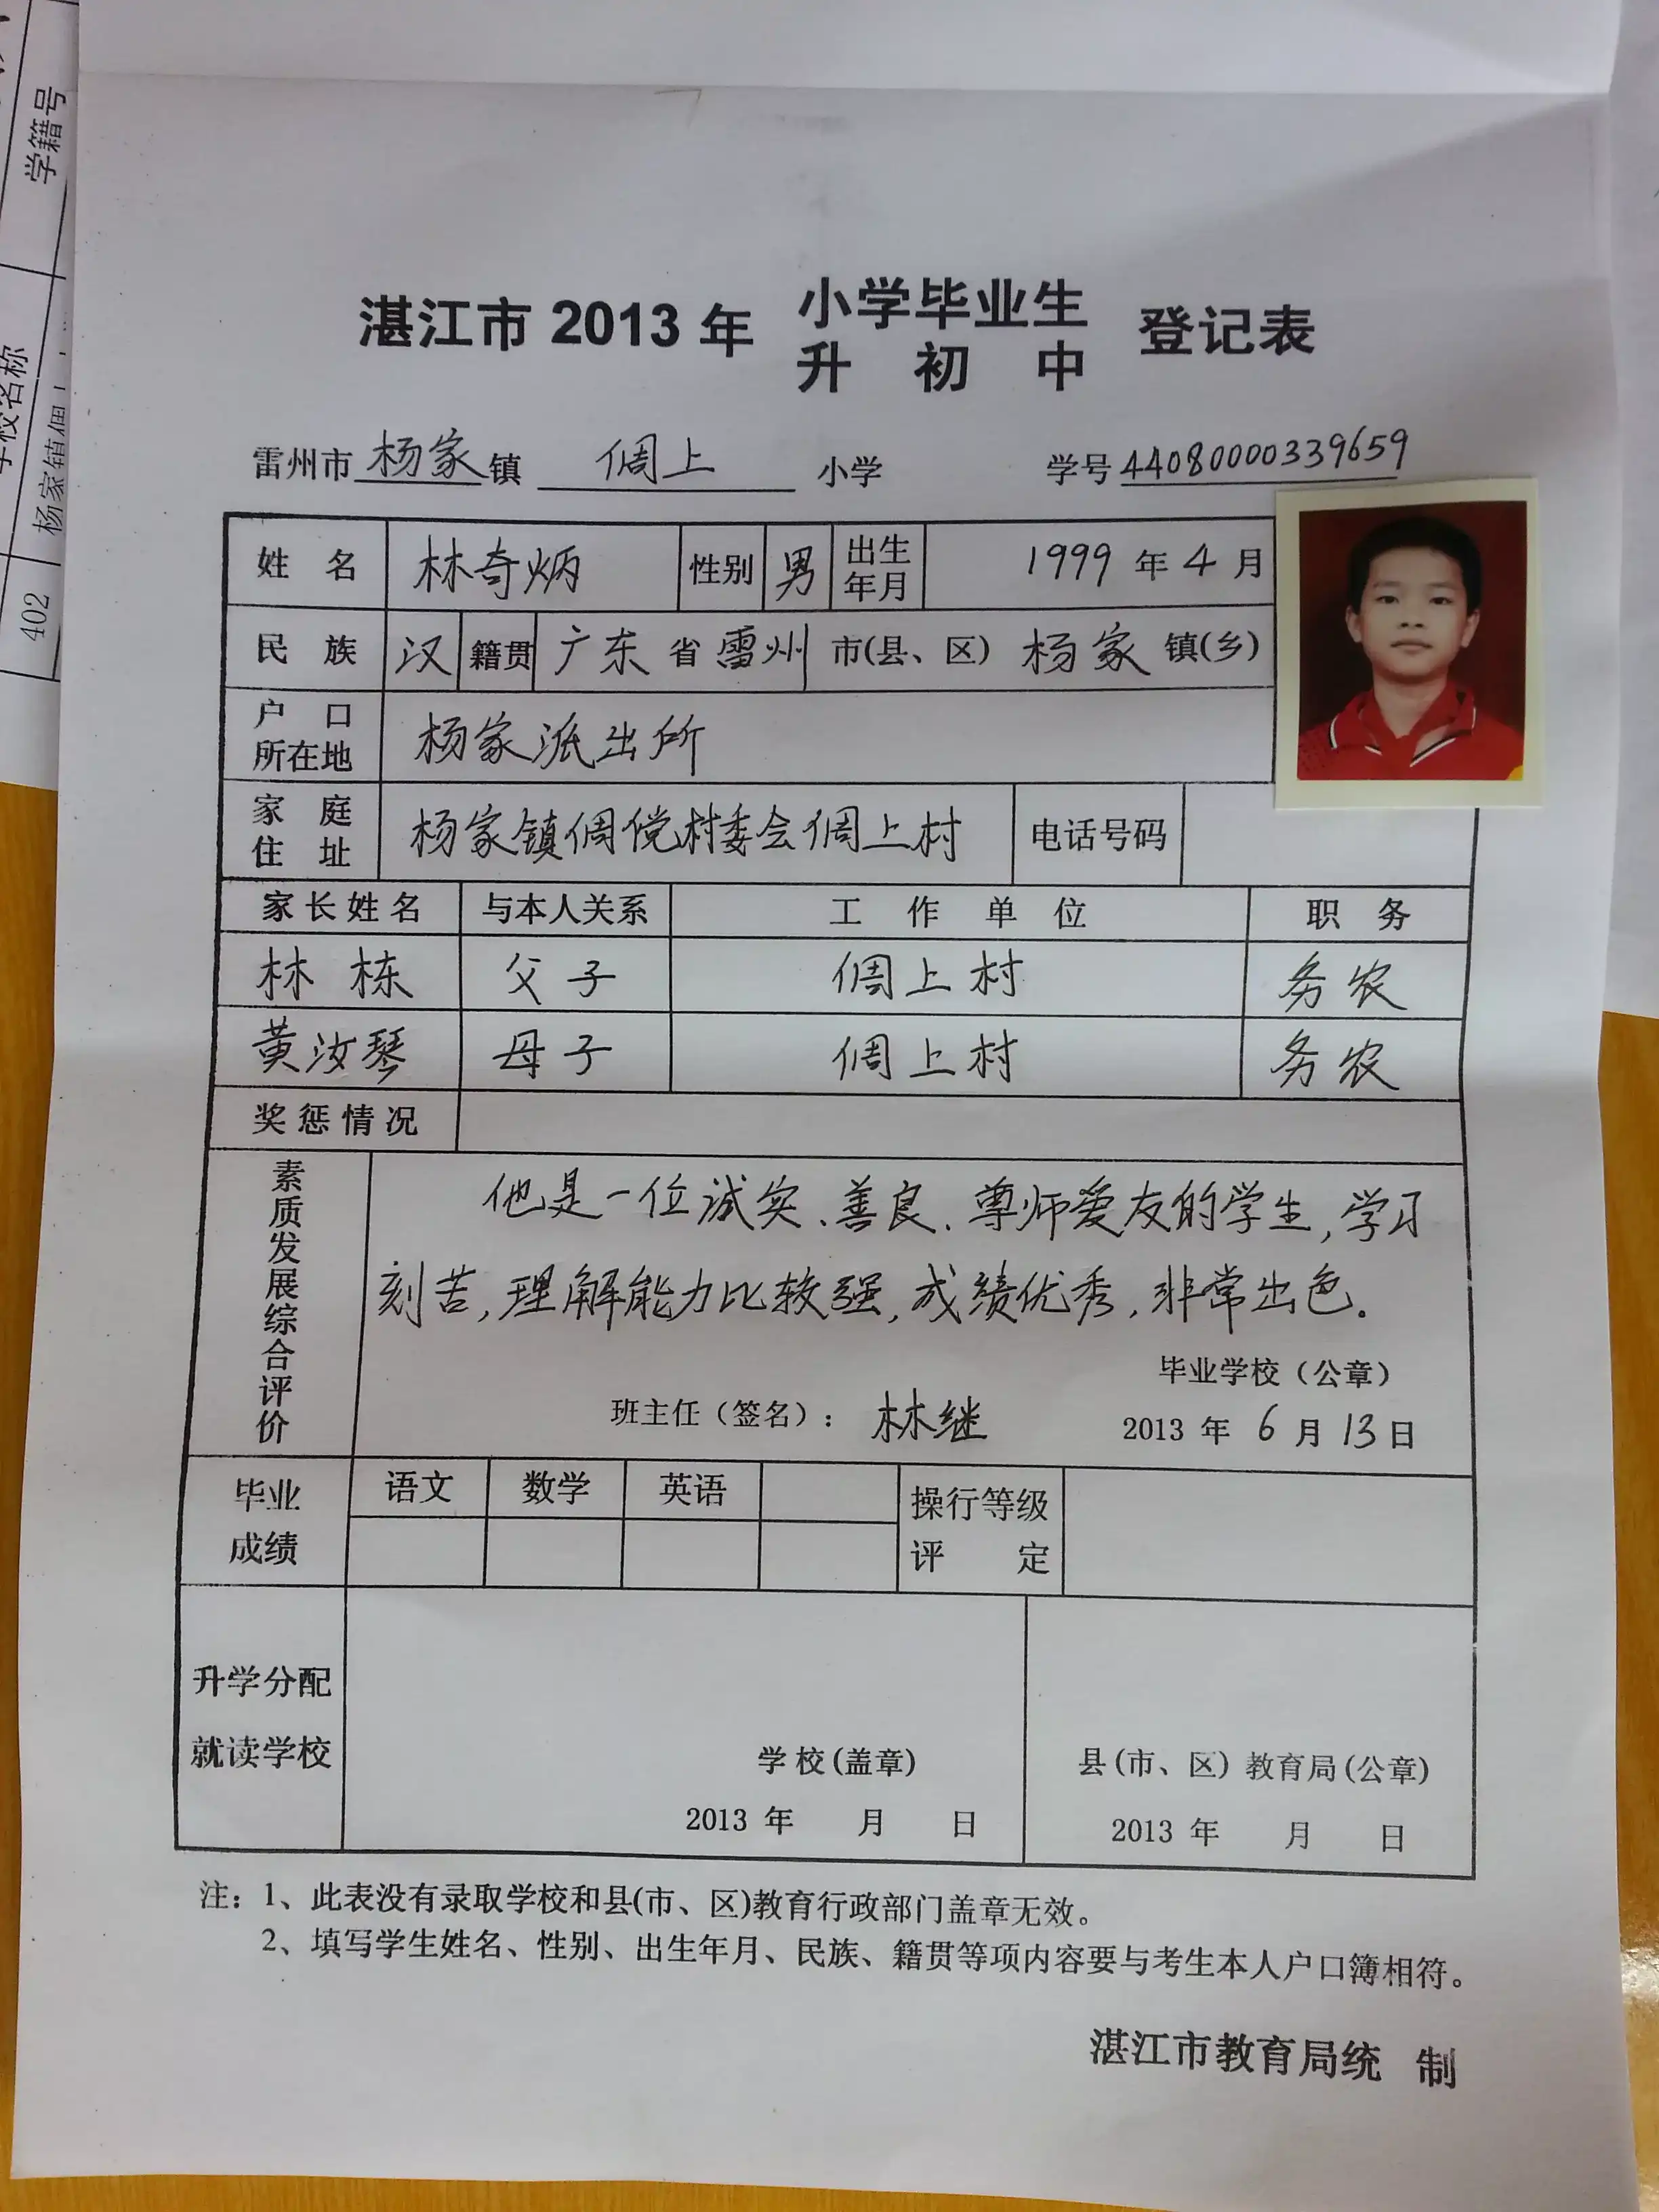 学籍号
学校名称
402
杨家镇倜上
湛江市 2013 年 小学毕业生 登记表
升 初 中
雷州市 杨家 镇 倜上 小学 学号 44080000339659
姓 名 林奇炳 性别 男 出生年月 1999 年 4 月
民 族 汉 籍贯 广东 省 雷州 市(县、区) 杨家 镇(乡)
户 口 所在地 杨家派出所
家 庭 住 址 杨家镇倜傥村委会倜上村 电话号码
家长姓名 与本人关系 工 作 单 位 职 务
林 栋 父子 倜上村 务农
黄汝琴 母子 倜上村 务农
奖惩情况
素质发展综合评价
他是一位诚实、善良、尊师爱友的学生,学习
刻苦,理解能力比较强,成绩优秀,非常出色.
毕业学校(公章)
班主任(签名): 林继 2013 年 6 月 13 日
毕业成绩 语文 数学 英语 操行等级评 定
升学分配
就读学校
学校(盖章) 县(市、区) 教育局(公章)
2013 年 月 日 2013 年 月 日
注: 1、此表没有录取学校和县(市、区)教育行政部门盖章无效。
2、填写学生姓名、性别、出生年月、民族、籍贯等项内容要与考生本人户口簿相符。
湛江市教育局统 制